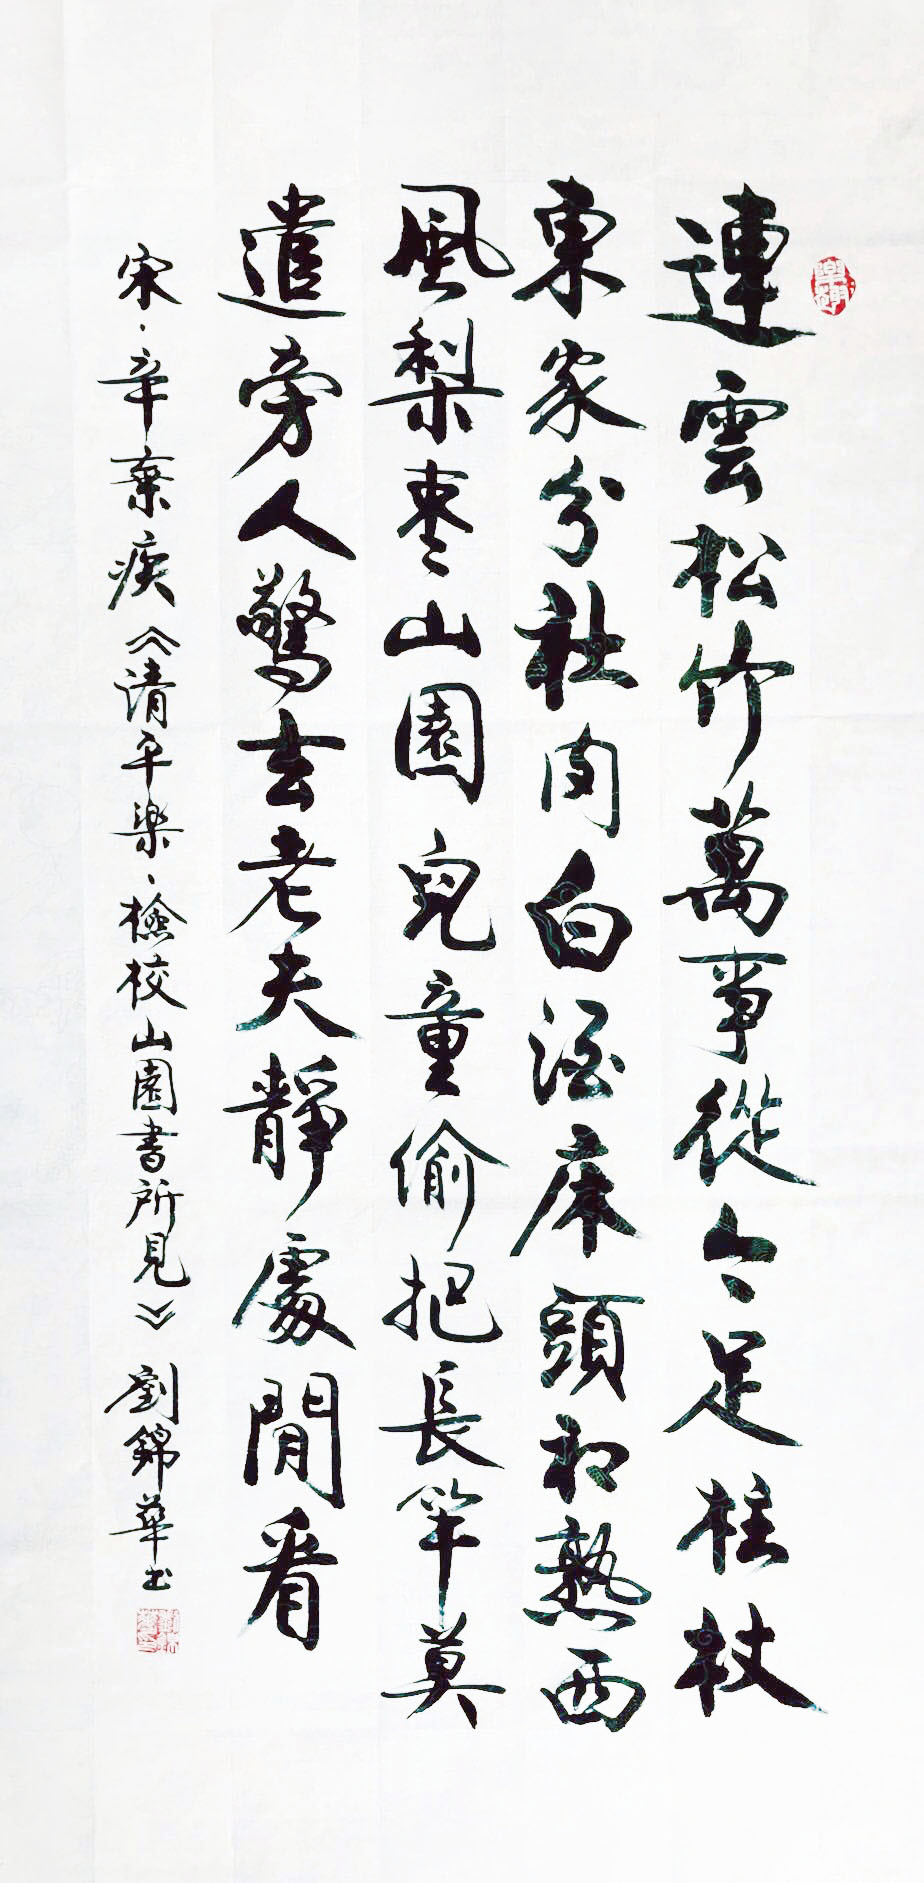 連雲松竹萬事從今足柱杖
東家分社肉白酒床頭初熟西
風梨枣山園兒童偷把長竿莫
遣旁人驚去老夫靜處閒看
宋·辛棄疾《清平樂·檢校山園書所見》劉錦華书